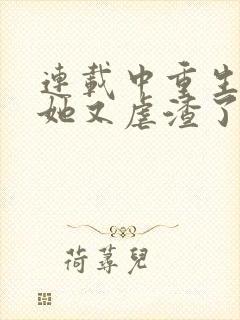 連載中重生
她又虐渣了
荷蕁兒